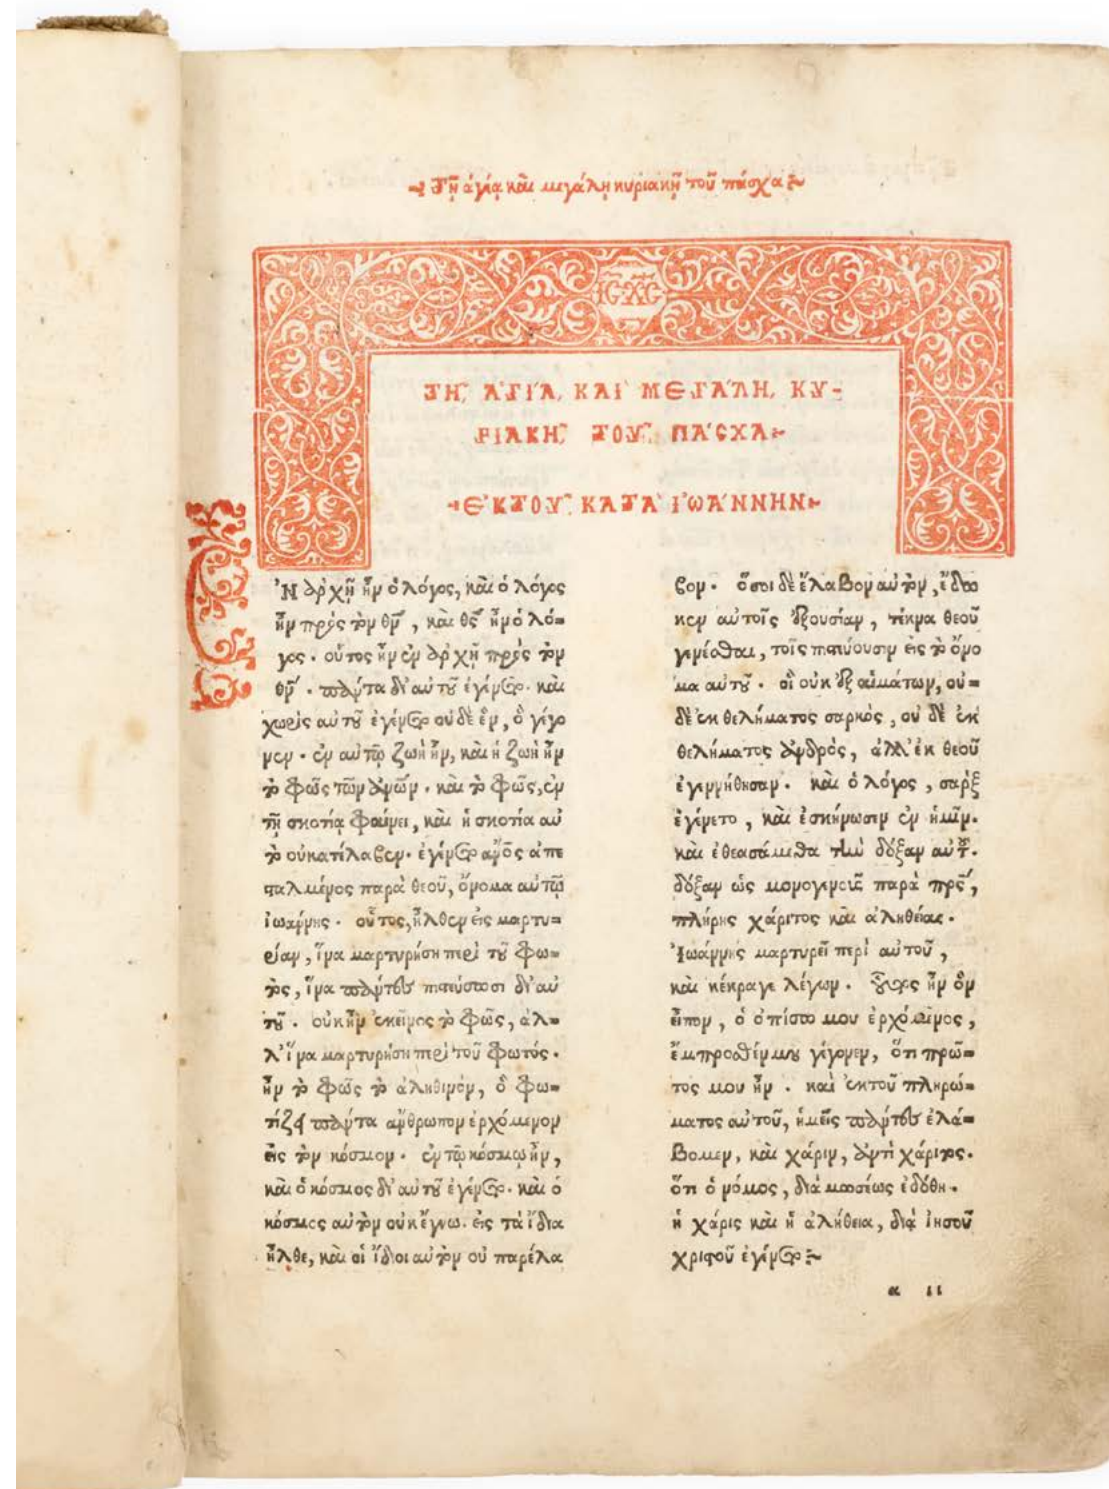 Τῇ ἁγίᾳ καὶ μεγάλῃ κυριακῇ τοῦ πάσχα
ΙC ΧC
ΤΗ͂ ἉΓΊΑ ΚΑῚ ΜΕΓΆΛΗ ΚΥ-
ΡΙΑΚΗ͂ ΤΟΥ͂ ΠΆCΧΑ
ἘΚ ΤΟΥ͂ ΚΑΤᾺ ἸΩΆΝΝΗΝ
Ἐν ἀρχῇ ἦν ὁ λόγος, καὶ ὁ λόγος
ἦν πρὸς τὸν θν̄, καὶ θς̄ ἦν ὁ λό=
γος. οὗτος ἦν ἐν ἀρχῇ πρὸς τὸν
θν̄. πάντα δι' αὐτοῦ ἐγένετο. καὶ
χωρὶς αὐτοῦ ἐγένετο οὐδὲ ἓν, ὃ γέγο
νεν. ἐν αὐτῷ ζωὴ ἦν, καὶ ἡ ζωὴ ἦν
τὸ φῶς τῶν ἀνων̄. καὶ τὸ φῶς, ἐν
τῇ σκοτίᾳ φαίνει, καὶ ἡ σκοτία αὐ
τὸ οὐ κατέλαβεν. ἐγένετο ἄνος̄ ἀπε
σταλμένος παρὰ θεοῦ, ὄνομα αὐτῷ
ἰωάννης. οὗτος, ἦλθεν εἰς μαρτυ=
ρίαν, ἵνα μαρτυρήση περὶ τοῦ φω=
τὸς, ἵνα πάντες πιστεύσωσι δι' αὐ
τοῦ. οὐκ ἦν ἐκεῖνος τὸ φῶς, ἀλ=
λ' ἵνα μαρτυρήση περὶ τοῦ φωτός.
ἦν τὸ φῶς τὸ ἀληθινόν, ὃ φω=
τίζει πάντα ἄνθρωπον ἐρχόμενον
εἰς τὸν κόσμον. ἐν τῷ κόσμῳ ἦν,
καὶ ὁ κόσμος δι' αὐτοῦ ἐγένετο. καὶ ὁ
κόσμος αὐτὸν οὐκ ἔγνω. εἰς τὰ ἴδια
ἦλθε, καὶ οἱ ἴδιοι αὐτὸν οὐ παρέλα
βον. ὅσοι δὲ ἔλαβον αὐτὸν, ἔδω
κεν αὐτοῖς ἐξουσίαν, τέκνα θεοῦ
γενέσθαι, τοῖς πιστεύουσιν εἰς τὸ ὄνο
μα αὐτοῦ. οἳ οὐκ ἐξ αἱμάτων, οὐ=
δὲ ἐκ θελήματος σαρκός, οὐ δὲ ἐκ
θελήματος ἀνδρὸς, ἀλλ' ἐκ θεοῦ
ἐγεννήθησαν. καὶ ὁ λόγος, σαρξ
ἐγένετο, καὶ ἐσκήνωσεν ἐν ἡμῖν.
καὶ ἐθεασάμεθα τὴν δόξαν αὐτοῦ.
δόξαν ὡς μονογενοῦς παρὰ πρς̄,
πλήρης χάριτος καὶ ἀληθείας.
Ἰωάννης μαρτυρεῖ περὶ αὐτοῦ,
καὶ κέκραγε λέγων. οὗτος ἦν ὃν
εἶπον, ὁ ὀπίσω μου ἐρχόμενος,
ἔμπροσθέν μου γέγονεν, ὅτι πρῶ=
τός μου ἦν. καὶ ἐκ τοῦ πληρώ=
ματος αὐτοῦ, ἡμεῖς πάντες ἐλά=
βομεν, καὶ χάριν, ἀντὶ χάριτος.
ὅτι ὁ νόμος, διὰ μωσέως ἐδόθη.
ἡ χάρις καὶ ἡ ἀλήθεια, διὰ ἰησοῦ
χριστοῦ ἐγένετο
α ιι